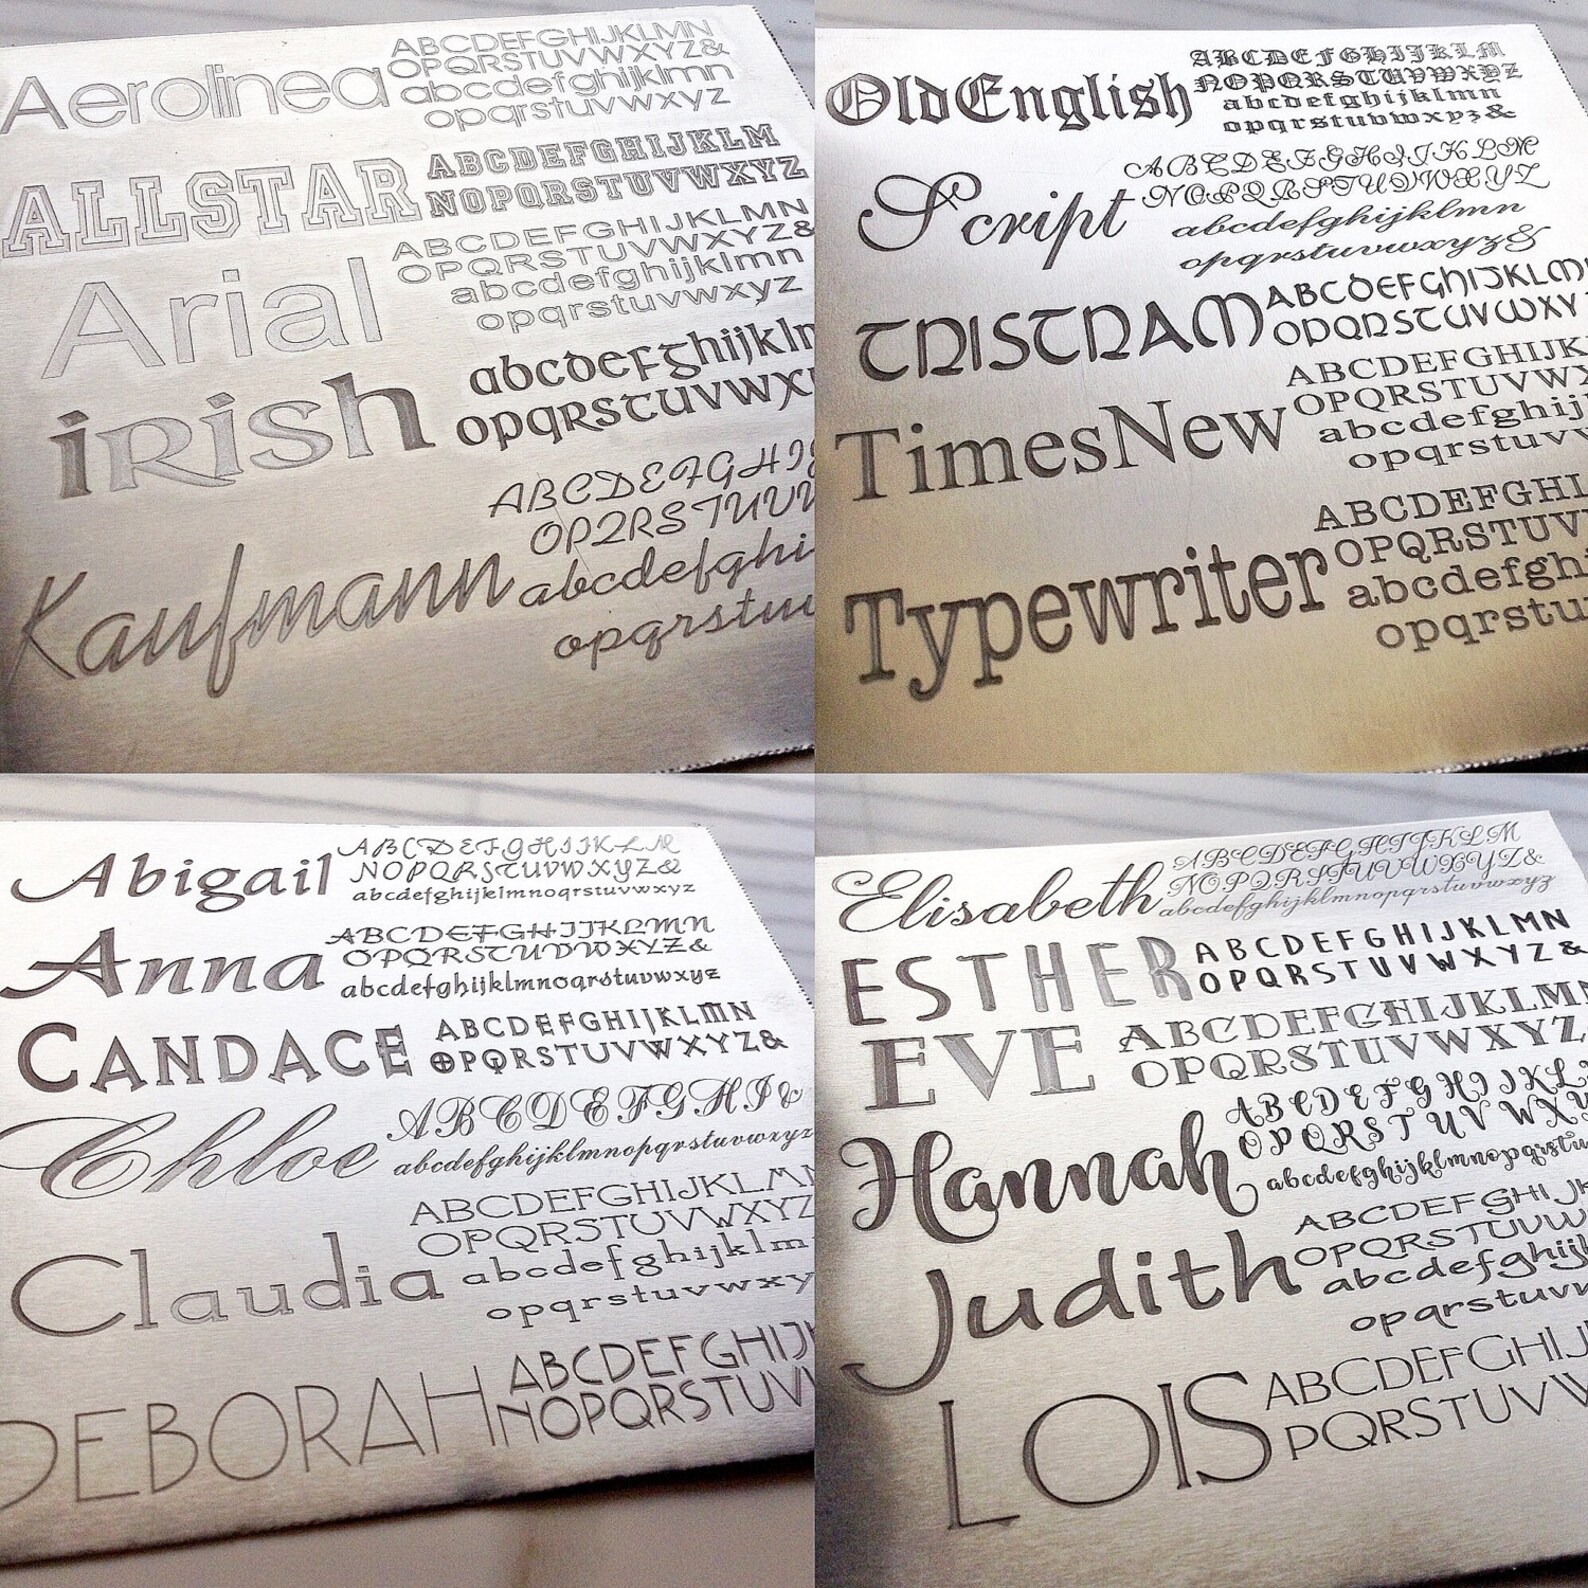 Aerolinea
ABCDEFGHIJKLMN
OPQRSTUVWXYZ&
abcdefghijklmn
opqrstuvwxyz
ALLSTAR
ABCDEFGHIJKLM
NOPQRSTUVWXYZ
Arial
ABCDEFGHIJKLMN
OPQRSTUVWXYZ&
abcdefghijklmn
opqrstuvwxyz
irish
abcdefghijkln
opqrstuvwx
Kaufmann
ABCDEFGHI
OPQRSTUV
abcdefghi
opqrstu
OldEnglish
ABCDEFGHIJKLM
NOPQRSTUVWXYZ
abcdefghijklmn
opqrstuvwxyz&
Script
ABCDEFGHIJKLM
NOPQRSTUVWXYZ
abcdefghijklmn
opqrstuvwxyz&
TRISTRAM
ABCDEFGHIJKLM
OPQRSTUVWXY
TimesNew
ABCDEFGHIJK
OPQRSTUVWX
abcdefghij
opqrstuvv
Typewriter
ABCDEFGHI
OPQRSTUV
abcdefgh
opqrstu
Abigail
ABCDEFGHIJKLM
NOPQRSTUVWXYZ&
abcdefghijklmnoqrstuvwxyz
Anna
ABCDEFGHIJKLMN
OPQRSTUVWXYZ&
abcdefghijklmnoqrstuvwxyz
CANDACE
ABCDEFGHIJKLMN
OPQRSTUVWXYZ&
Chloe
ABCDEFGHI&
abcdefghijklmnopqrstuvwxyz
Claudia
ABCDEFGHIJKLM
OPQRSTUVWXYZ
abcdefghijklm
opqrstuvwxy
DEBORAH
ABCDEFGHIJ
NOPQRSTUV
Elisabeth
ABCDEFGHIJKLM
NOPQRSTUVWXYZ&
abcdefghijklmnopqrstuvwxyz
ESTHER
ABCDEFGHIJKLMN
OPQRSTUVWXYZ&
EVE
ABCDEFGHIJKLMN
OPQRSTUVWXYZ
Hannah
ABCDEFGHIJKL
OPQRSTUVWXY
abcdefghijklmnopqrstu
Judith
ABCDEFGHIJK
OPQRSTUVW
abcdefghijk
opqrstuvw
LOIS
ABCDEFGHIJ
PQRSTUVW